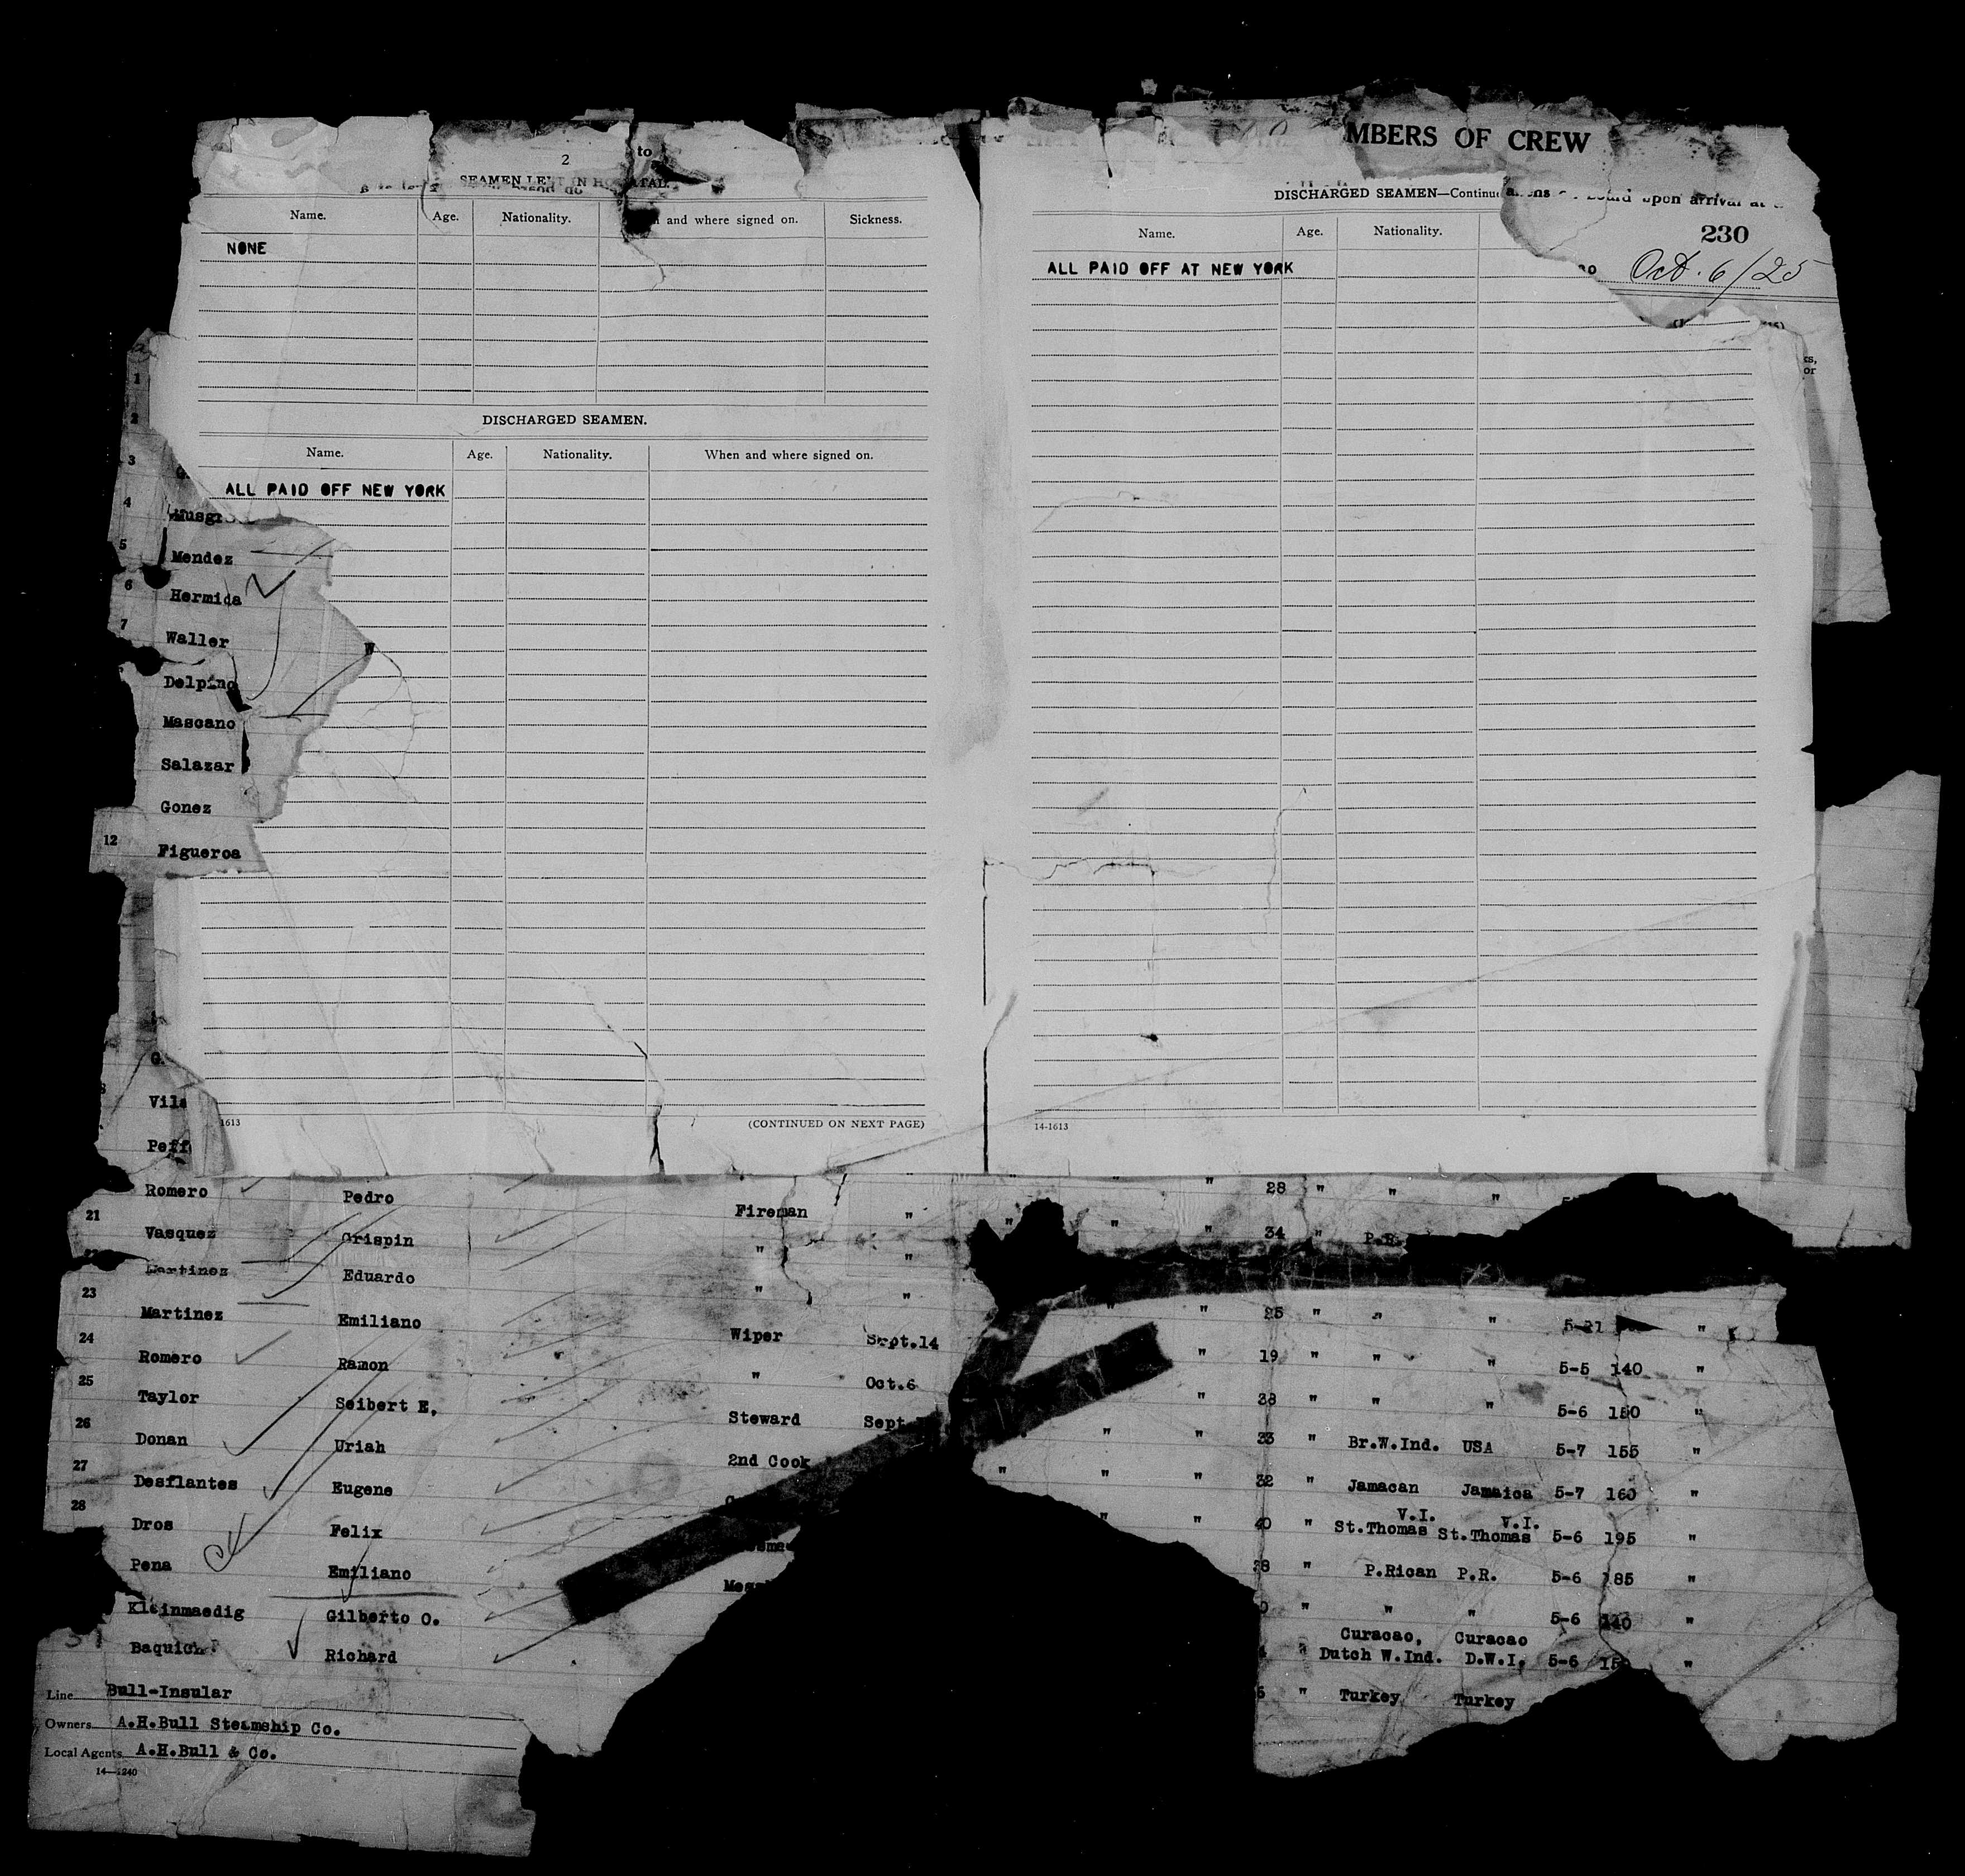 MBERS OF CREW
2 to
SEAMEN LEFT IN HOSPITAL.
Name. Age. Nationality. and where signed on. Sickness.
NONE
DISCHARGED SEAMEN.
Name. Age. Nationality. When and where signed on.
ALL PAID OFF NEW YORK
1613 (CONTINUED ON NEXT PAGE)
DISCHARGED SEAMEN—Continue
upon arrival at
Name. Age. Nationality.
230
Oct. 6/25
ALL PAID OFF AT NEW YORK
14-1613
1
2
3
4
5 Mendez
6 Hermida
7 Waller
W
Delpino
Mascano
Salazar
Gonez
12 Figueroa
Romero Pedro Fireman " " 28 " " "
21 Vasquez Crispin " " " " " 34 " P.R.
Martinez Eduardo " "
23 Martinez Emiliano Wiper Sept.14 " " 25 " " " "
24 Romero Ramon " Oct.6 " 19 " " " 5-5 140 "
25 Taylor Seibert E. Steward Sept " 38 " " " 5-6 150 "
26 Donan Uriah 2nd Cook " " 33 " Br.W.Ind. USA 5-7 155 "
27 Desflantes Eugene " " " 32 " Jamacan Jamaica 5-7 160 "
28 Dros Felix " " 40 " V.I. St.Thomas V.I. St.Thomas 5-6 195 "
Pena Emiliano " P.Rican P.R. 5-6 185 "
Kleinmaedig Gilberto O. " " " 5-6 140 "
Richard " Curacao, Dutch W.Ind. Curacao D.W.I. 5-6 "
" Turkey Turkey
Line Bull-Insular
Owners A.H.Bull Steamship Co.
Local Agents A.H.Bull & Co.
14—1240